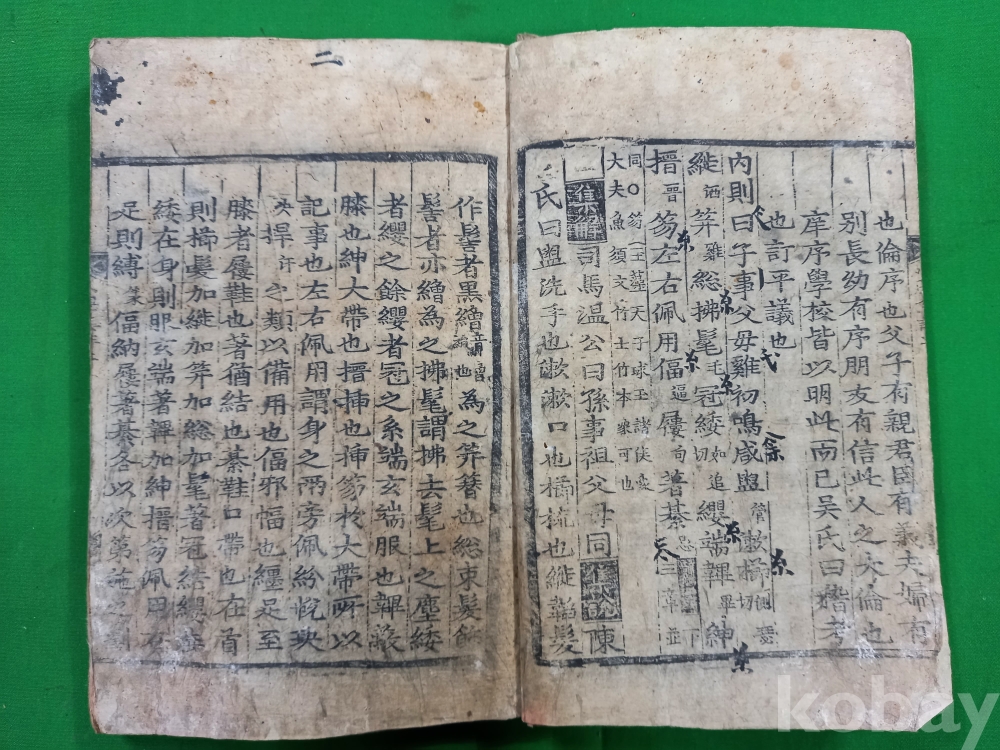 也倫序也父子有親君臣有義夫婦有
別長幼有序朋友有信此人之大倫也
庠序學校皆以明此而已吳氏曰稽考
也訂平議也
內則曰子事父母雞初鳴咸盥漱櫛
縰笄總拂髦冠緌纓端韠紳
搢笏左右佩用偪屨著綦
同○笏(玉藻天子球玉諸侯象
大夫魚須文竹士竹本象可也
集解司馬溫公曰孫事祖父母同 陳
氏曰盥洗手也漱漱口也櫛梳也縰韜髮
作髻者黑繒為之笄簪也總束髮飾
髻者亦繒為之拂髦謂拂去髦上之塵緌
者纓之餘纓者冠之系端玄端服也韠蔽
膝也紳大帶也搢揷也揷笏於大帶所以
記事也左右佩用謂身之兩旁佩紛帨玦
捍之類以備用也偪邪幅也纏足至
膝者屨鞋也著猶結也綦鞋口帶也在首
則櫛髮加縰加笄加總加髦著冠結纓垂
緌在身則服玄端著韠加紳搢笏佩用在
足則縛偪納屨著綦各以次第施之
二
kobay